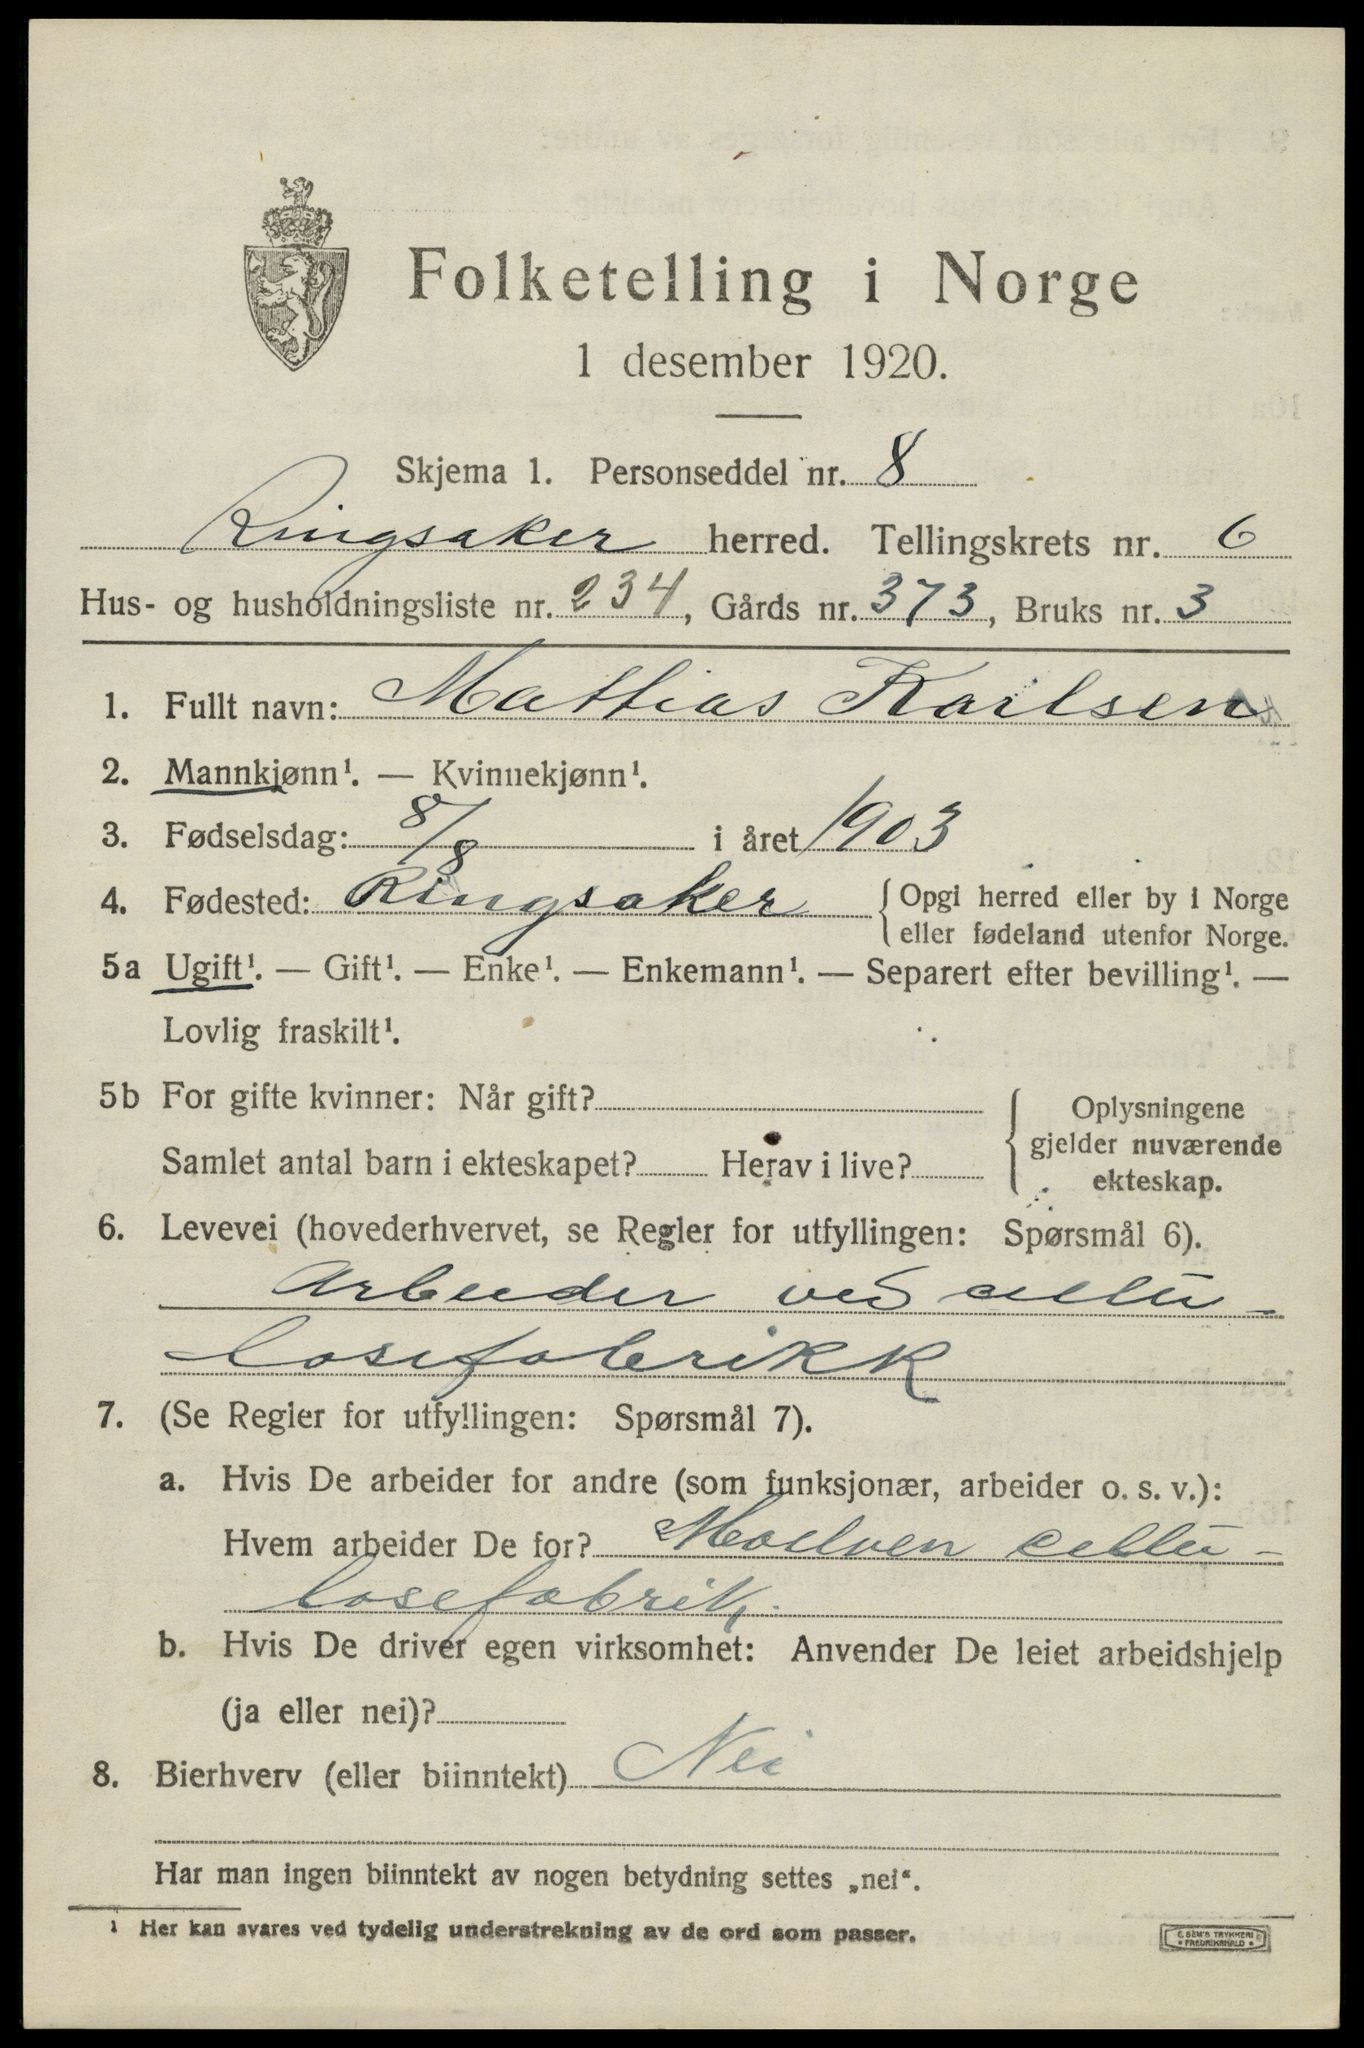 Folketelling i Norge
1 desember 1920.
Skjema 1. Personseddel nr. 8
Ringsaker herred. Tellingskrets nr. 6
Hus- og husholdningsliste nr. 234, Gårds nr. 373, Bruks nr. 3
1. Fullt navn: Mattias Karlsen
2. Mannkjønn¹. — Kvinnekjønn¹.
3. Fødselsdag: 8/8 i året 1903
4. Fødested: Ringsaker {Opgi herred eller by i Norge
eller fødeland utenfor Norge.
5a Ugift¹. — Gift¹. — Enke¹. — Enkemann¹. — Separert efter bevilling¹. —
Lovlig fraskilt¹.
5b For gifte kvinner: Når gift?
Samlet antal barn i ekteskapet? Herav i live?
Oplysningene
gjelder nuværende
ekteskap.
6. Levevei (hovederhvervet, se Regler for utfyllingen: Spørsmål 6).
Arbeider ved cellu-
losefabrikk
7. (Se Regler for utfyllingen: Spørsmål 7).
a. Hvis De arbeider for andre (som funksjonær, arbeider o. s. v.):
Hvem arbeider De for? Moelven cellu-
losefabrik.
b. Hvis De driver egen virksomhet: Anvender De leiet arbeidshjelp
(ja eller nei)?
8. Bierhverv (eller biinntekt) Nei
Har man ingen biinntekt av nogen betydning settes „nei“.
¹ Her kan svares ved tydelig understrekning av de ord som passer.
E. SEM'S TRYKKERI
FREDRIKSHALD